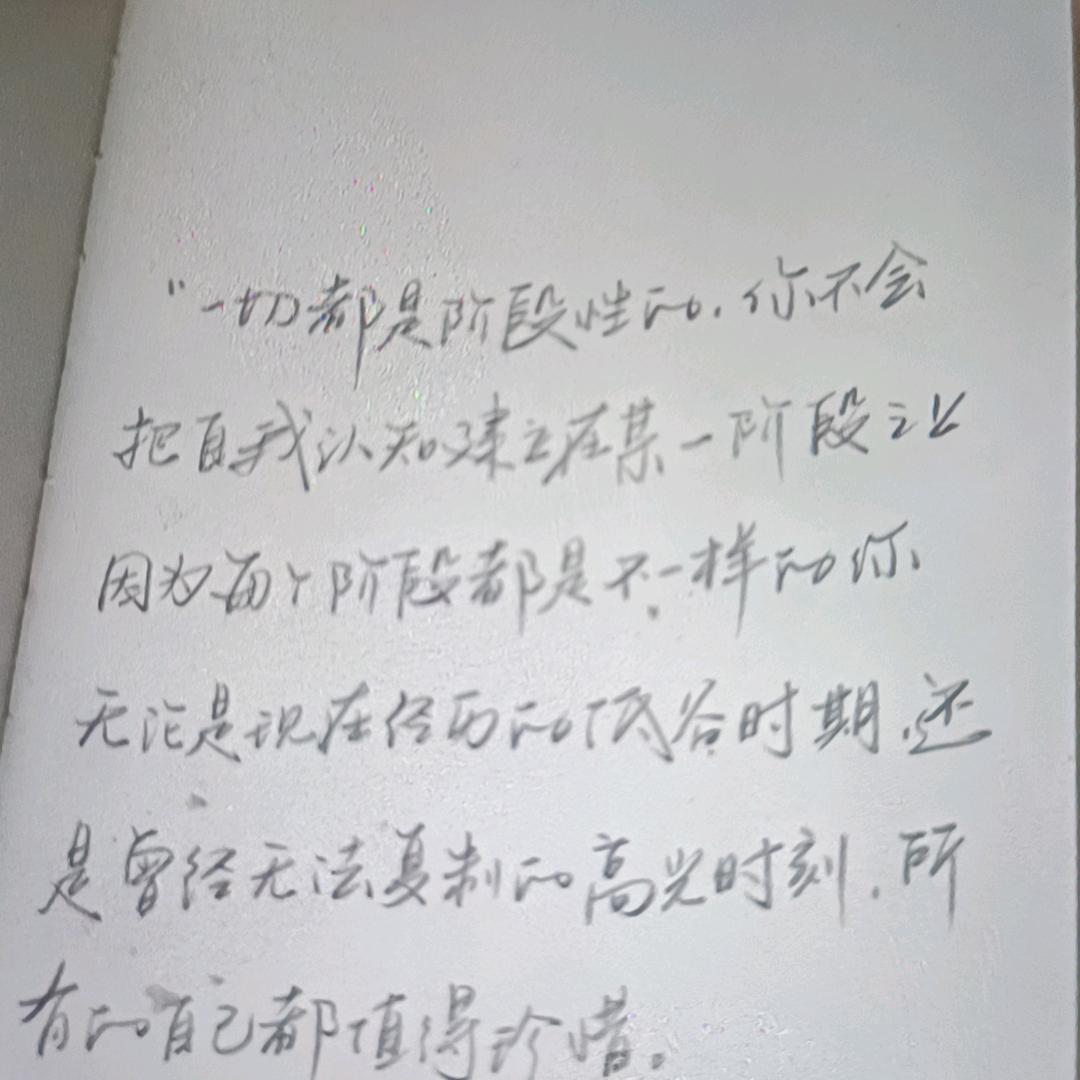 "一切都是阶段性的.你不会
把自我认知建立在某一阶段之上
因为每个阶段都是不一样的你
无论是现在经历的低谷时期.还
是曾经无法复制的高光时刻.所
有的自己都值得珍惜。